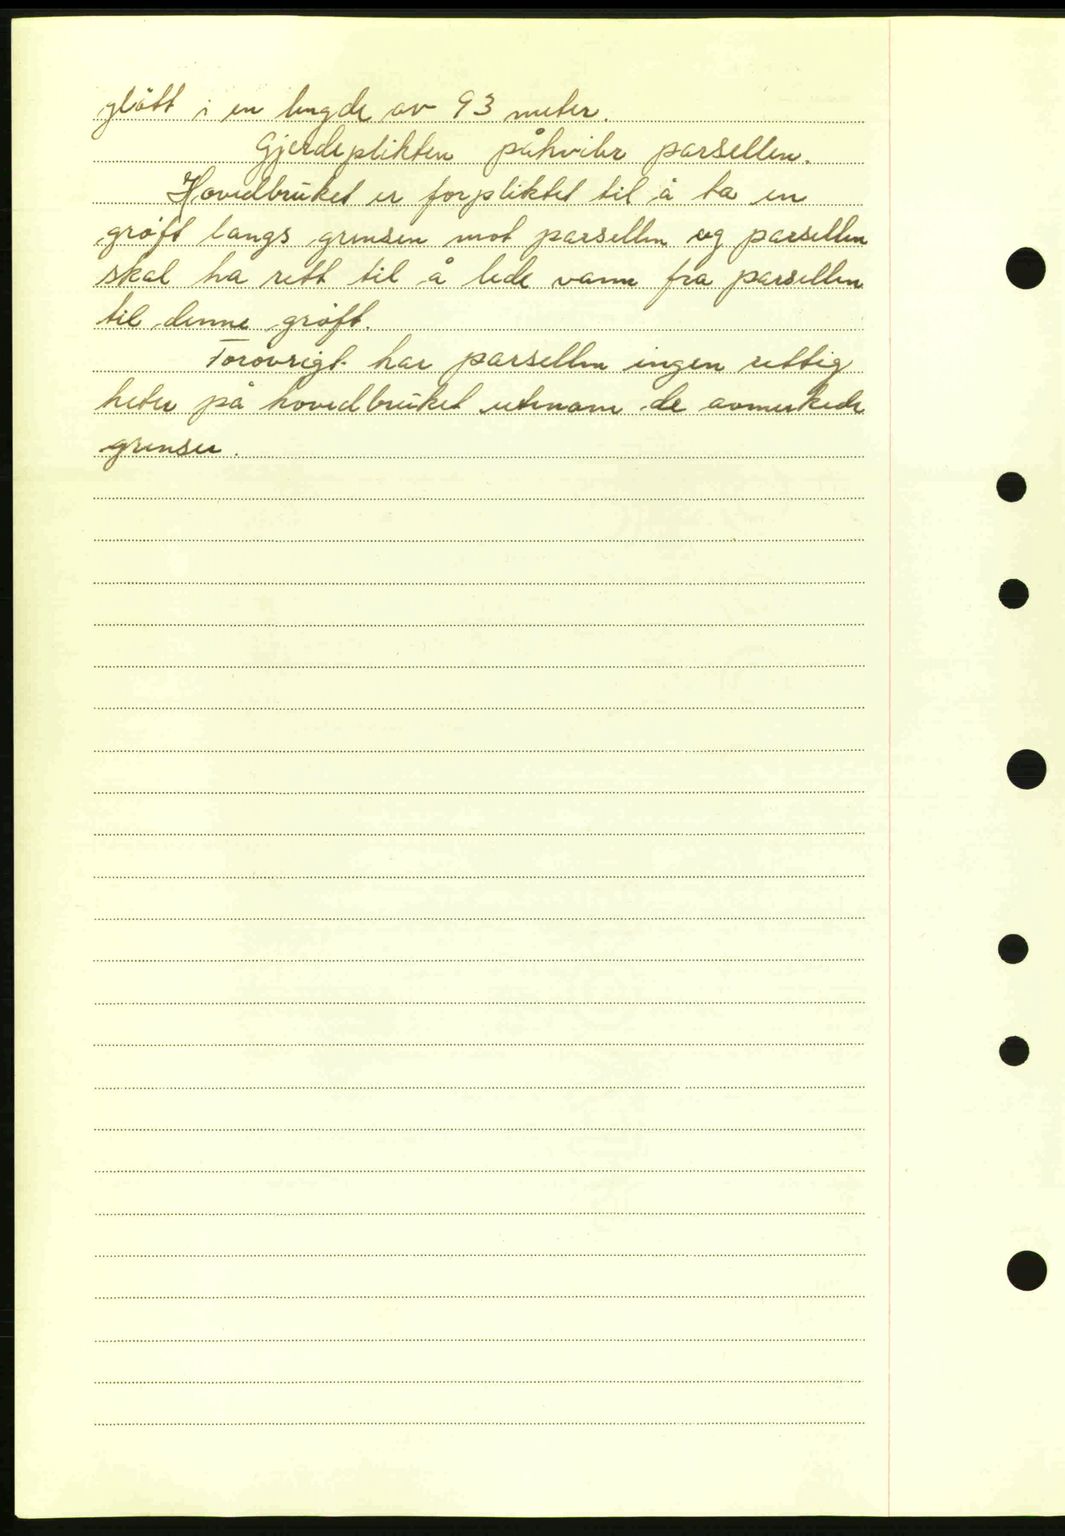 glött i en lengde av 93 meter.
Gjerdeplikten påhviler parsellen.
Hovedbruket er forpliktet til å ta en
grøft langs grensen mot parsellen og parsellen
skal ha rett til å lede vann fra parsellen
til denne grøft.
Forøvrigt har parsellen ingen rettig
heter på hovedbruket utenom de avmerkede
grenser.